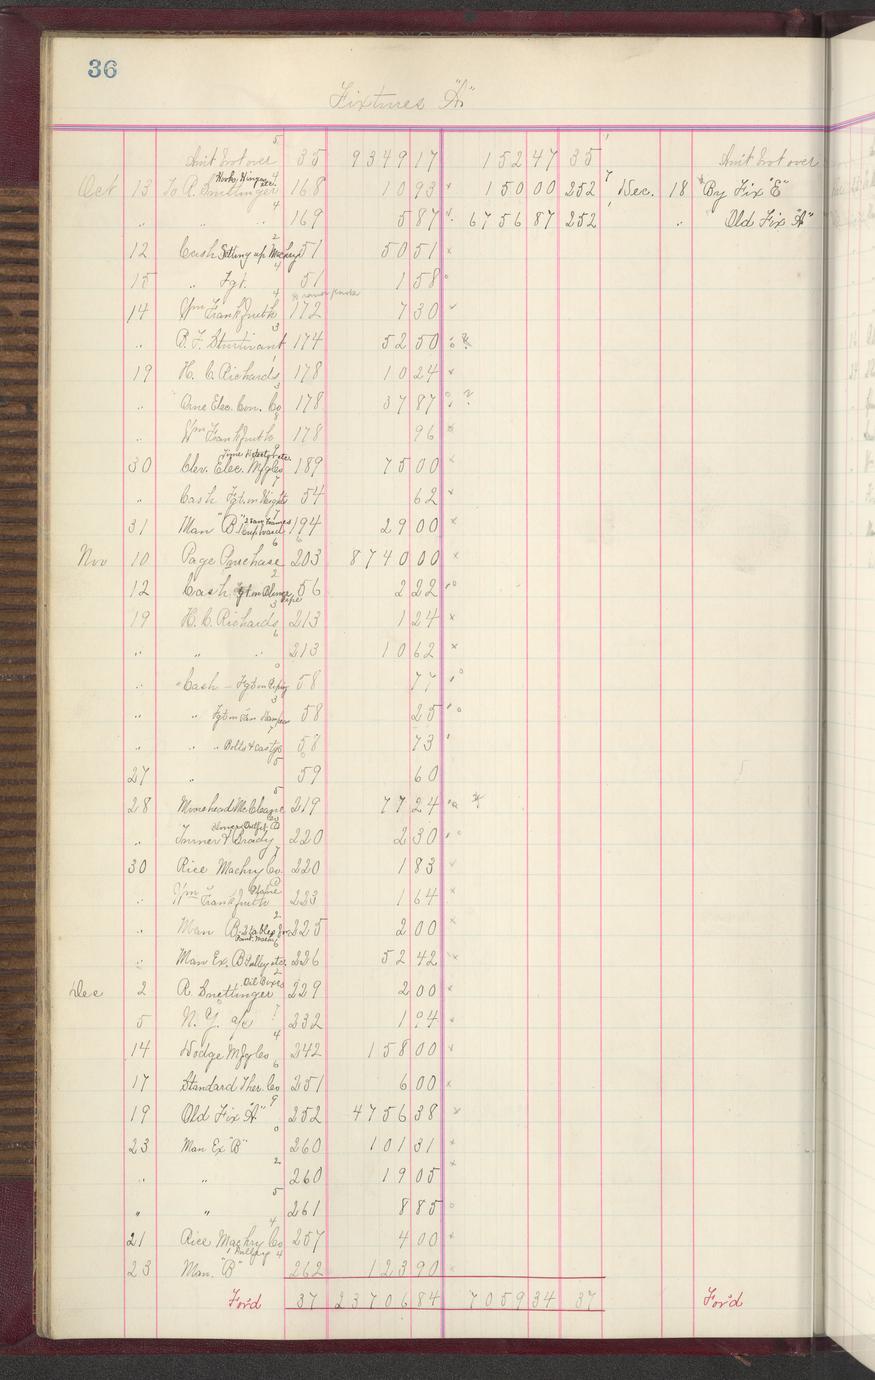 36
Fixtures "A"
Amt brot over 35 9349 17 152 47 35 Amt brot over
Oct 13 To R. Snettinger Hooks, Hinges etc. 168 10 93 150 00 252 Dec. 18 By Fix "E"
" " " 169 5 87 6756 87 252 " Old Fix "A"
12 Cash Setting up Machry 51 50 51
15 " Fgt. 51 1 58
14 Wm Frankfurth 172 7 30
" B. F. Sturtivant 174 52 50
19 H. C. Richards 178 10 24
" Orne Elec. Con. Co 178 37 87 ?
" Wm Frankfurth 178 96
30 Clev. Elec. Mfg Co 189 75 00
" Cash Fgt. on Weights 54 62
31 Man "B" 194 29 00
Nov 10 Page Purchase 203 8740 00
12 Cash Fgt on Pipe 56 2 22
19 H. C. Richards 213 1 24
" " " 213 10 62
" Cash Fgt on Piping 58 77
" " Fgt on 58 25
" " " Bolts & Castgs 58 73
27 " 59 60
28 Morehead Mc Cleane 219 77 24
" Turner & Brady 220 2 30
30 Rice Machry Co. 220 1 83
" Wm Frankfurth 223 1 64
" Man B. 2 tables for Sand. Mach. 225 2 00
" Man Ex. B Pulley etc. 226 52 42
Dec 2 R. Snettinger Oil Boxes 229 2 00
5 N. Y. a/c 232 1 94
14 Dodge Mfg Co 242 158 00
17 Standard Ther. Co 251 6 00
19 Old Fix "A" 252 4756 38
23 Man Ex "B" 260 101 31
" " 260 19 05
" " 261 8 85
21 Rice Machry Co 257 4 00
23 Man. "B" 1 Pulley 262 123 90
For'd 37 23706 84 7059 34 37 For'd